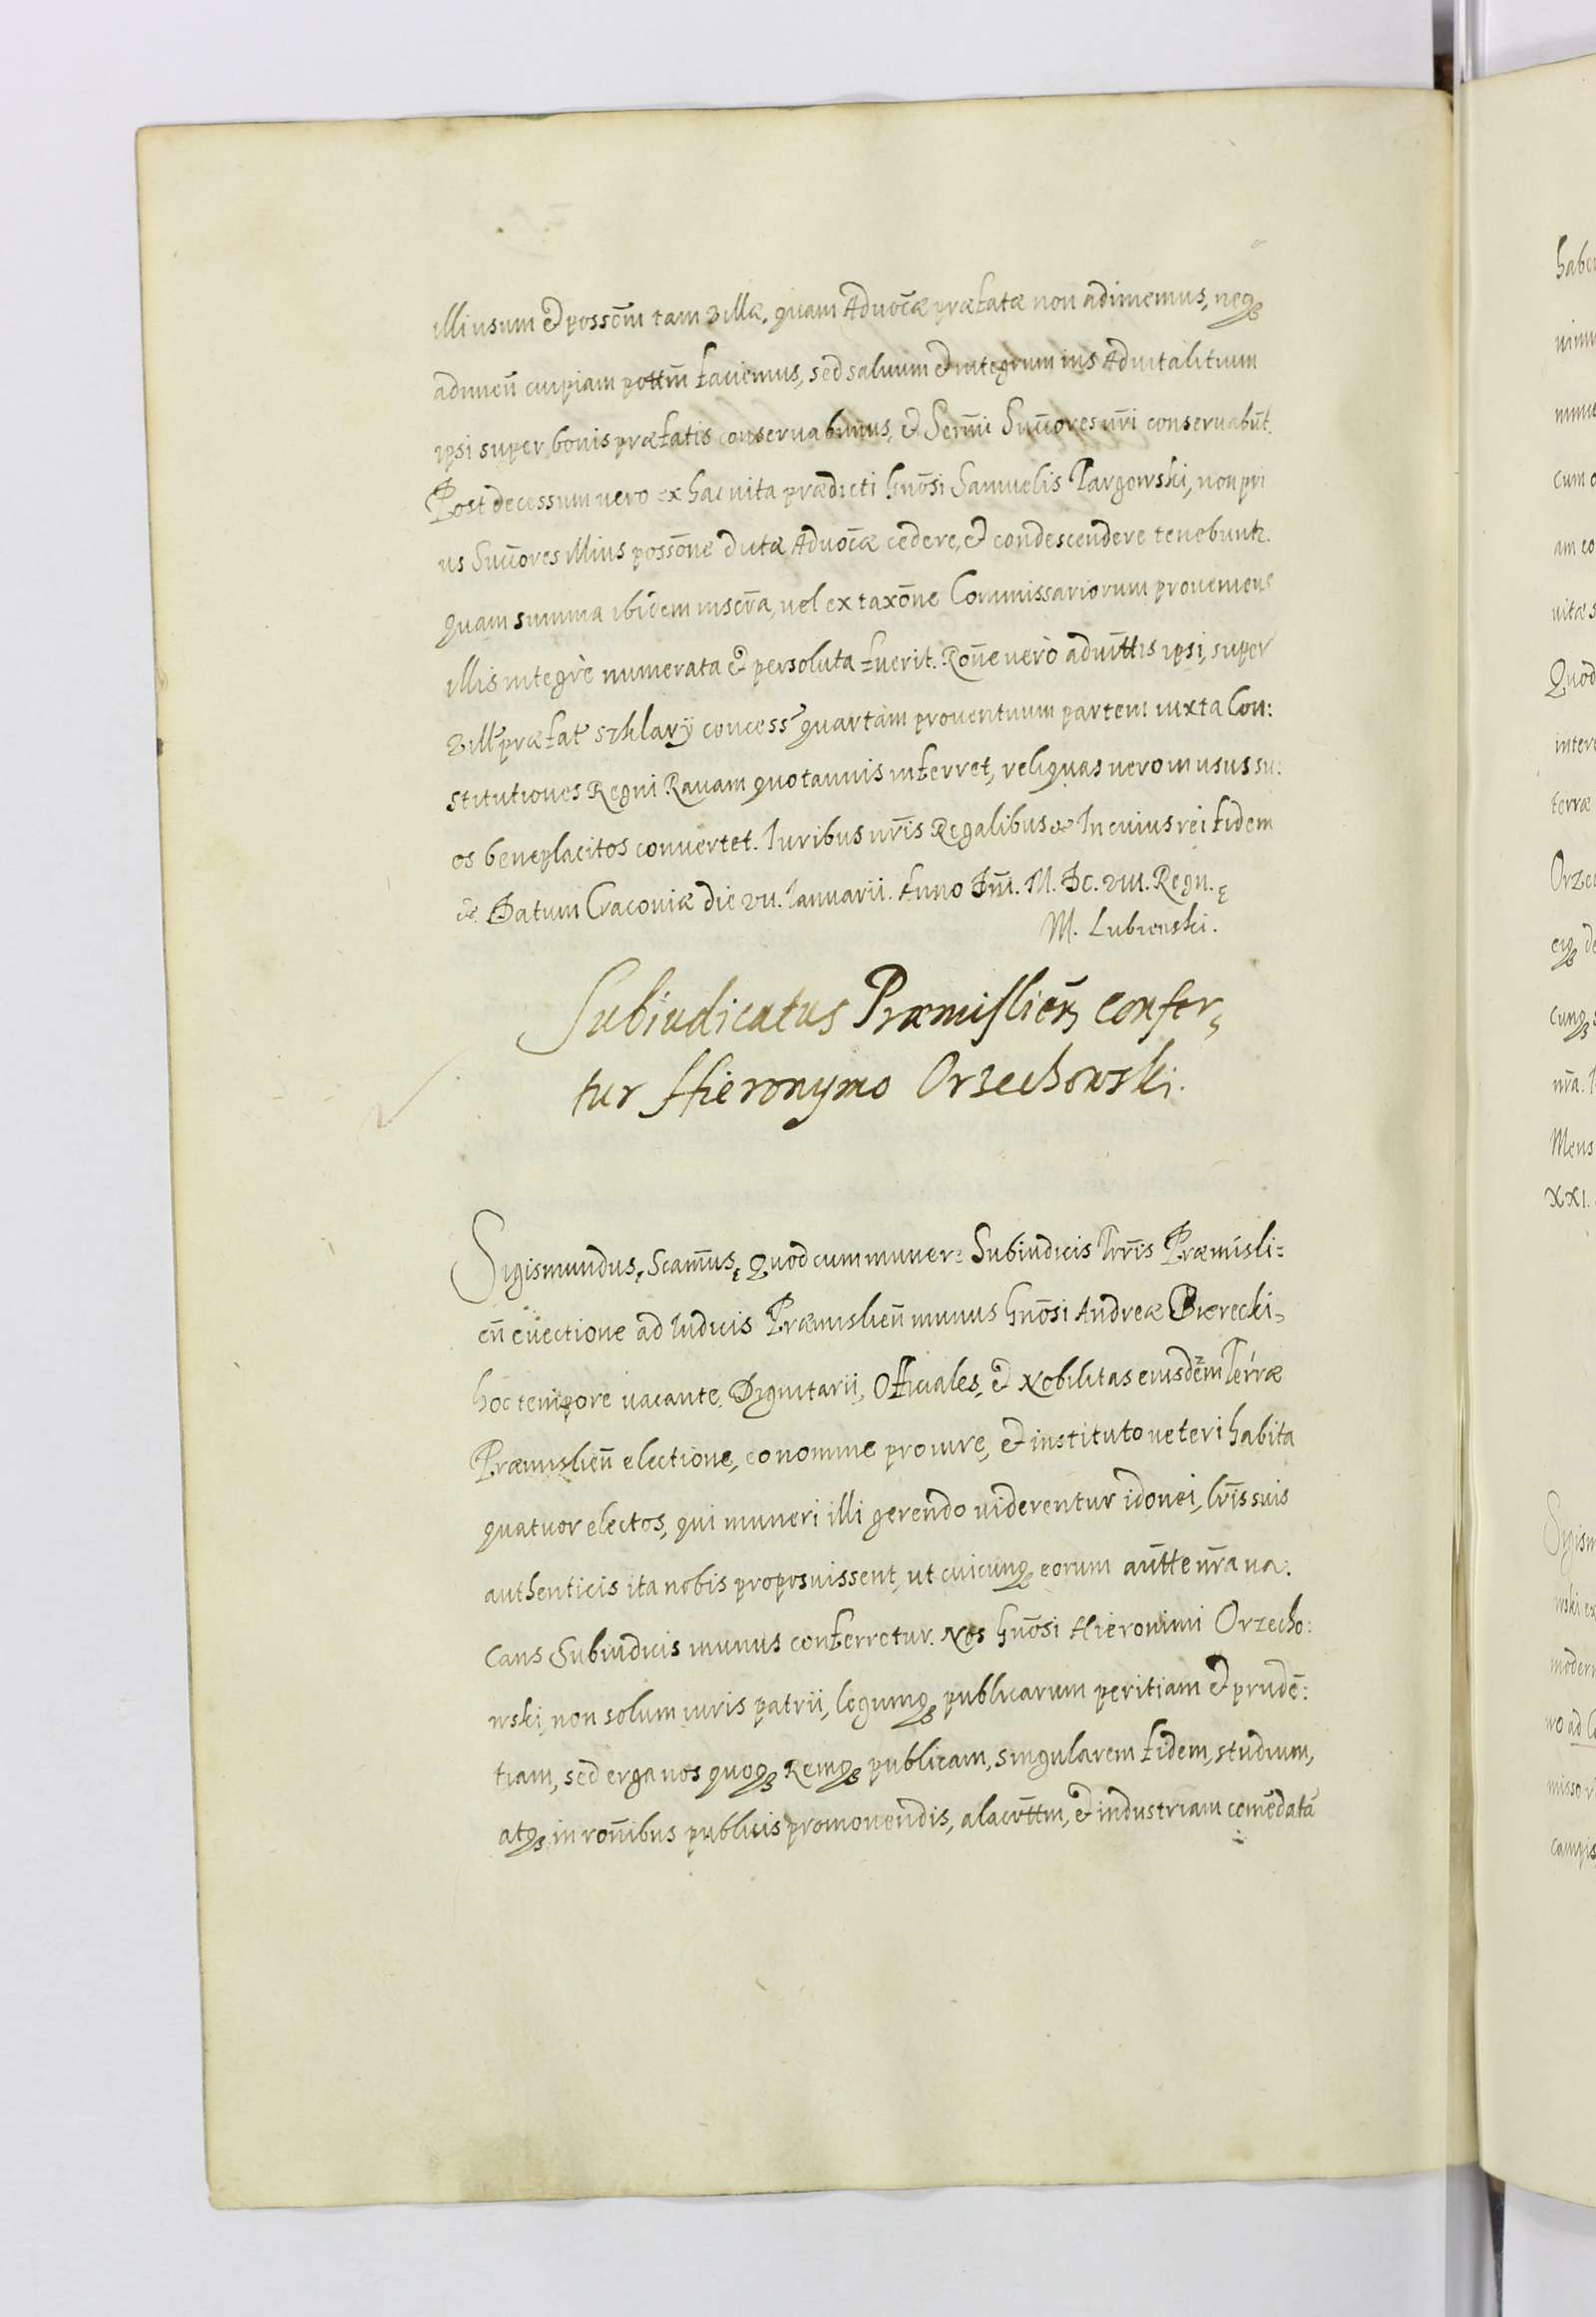 illi usum & possōm tam Villæ, quam Advōcæ præfatæ non adimemus, neq₃
adimeñ cuipiam pottm̄ faciemus, sed salvum & integrum ius Advitalitium
ipsi super bonis præfatis conservabimus, & Serm̄i Succ̄ores nr̄i conservabūt.
Post decessum vero ex hac vita prædicti Gnōsi Samuelis Targowski, non pri
us Succ̄ores illius possōne dictæ Advōcæ cedere, & condescendere tenebunt̃.
quam summa ibidem inserr̄a, vel ex taxōne Commissariorum proveniens
illis integrè numerata & persoluta fuerit. Rōne verò advittis ipsi, super
Vill' præfat' Szklary concess' quartam proventuum partem iuxta Con:
stitutiones Regni Ravam quotannis inferret, reliquas vero in usus su:
os beneplacitos convertet. Iuribus nr̄is Regalibus &c In cuius rei fidem
&c. Datum Cracoviæ die VII. Ianuarii. Anno Dn̄i. M. Dc. VIII. Regn. ę
M. Lubienski.
Subiudicatus Præmislień confer,
tur Hieronymo Orzechowski.
Sigismundus, Scām̄us, Quod cum muner: Subiudicis Trr̄is Præmisli:
eñ evectione ad Iudicis Præmislieñ munus Gnōsi Andreæ Borecki,
hoc tempore vacante. Dignitarii, Officiales, & Nobilitas eiusdēm Terræ
Præmislieñ electione, eo nomine pro iure, & instituto veteri habita
quatuor electos, qui muneri illi gerendo viderentur idonei, lr̄is suis
authenticis ita nobis proposuissent, ut cuicunq₃ eorum aūtte nr̄a va:
cans Subiudicis munus conferretur. Nos Gnōsi Hieronimi Orzecho:
wski, non solum iuris patrii, legumq₃ publicarum peritiam & prudē:
tiam, sed erga nos quoq₃ Remq₃ publicam, singularem fidem, studium,
atq₃ in rōnibus publicis promovendis, alacrīttm, & industriam com̄ēdatā